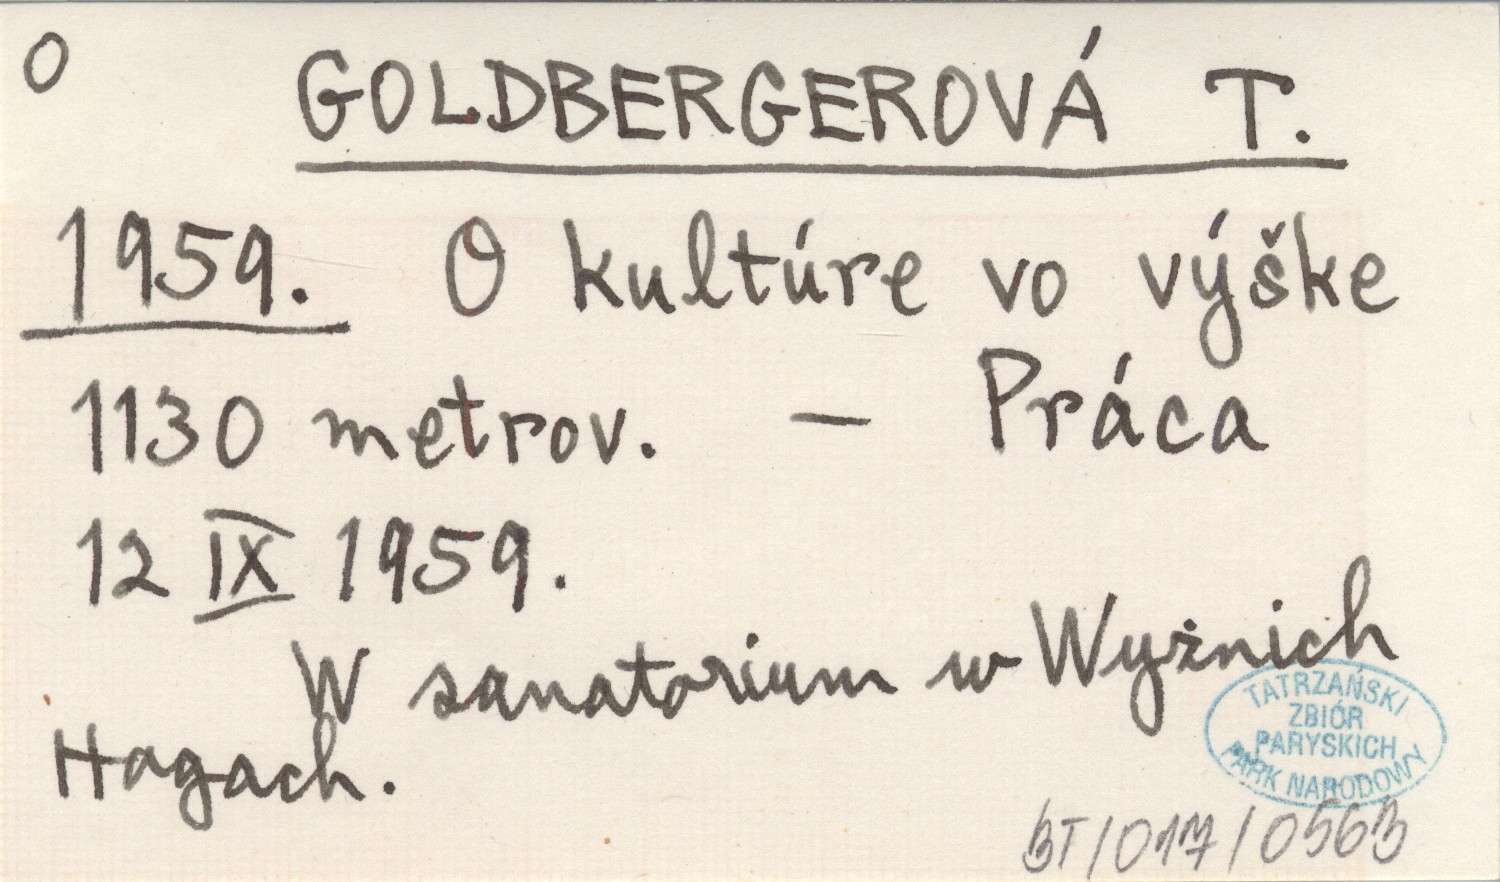 O
GOLDBERGEROVÁ T.
1959. O kultúre vo výške
1130 metrov. — Práca
12 IX 1959.
W sanatorium w Wyżnich
Hagach.
TATRZAŃSKI
ZBIÓR
PARYSKICH
PARK NARODOWY
BT/017/0563